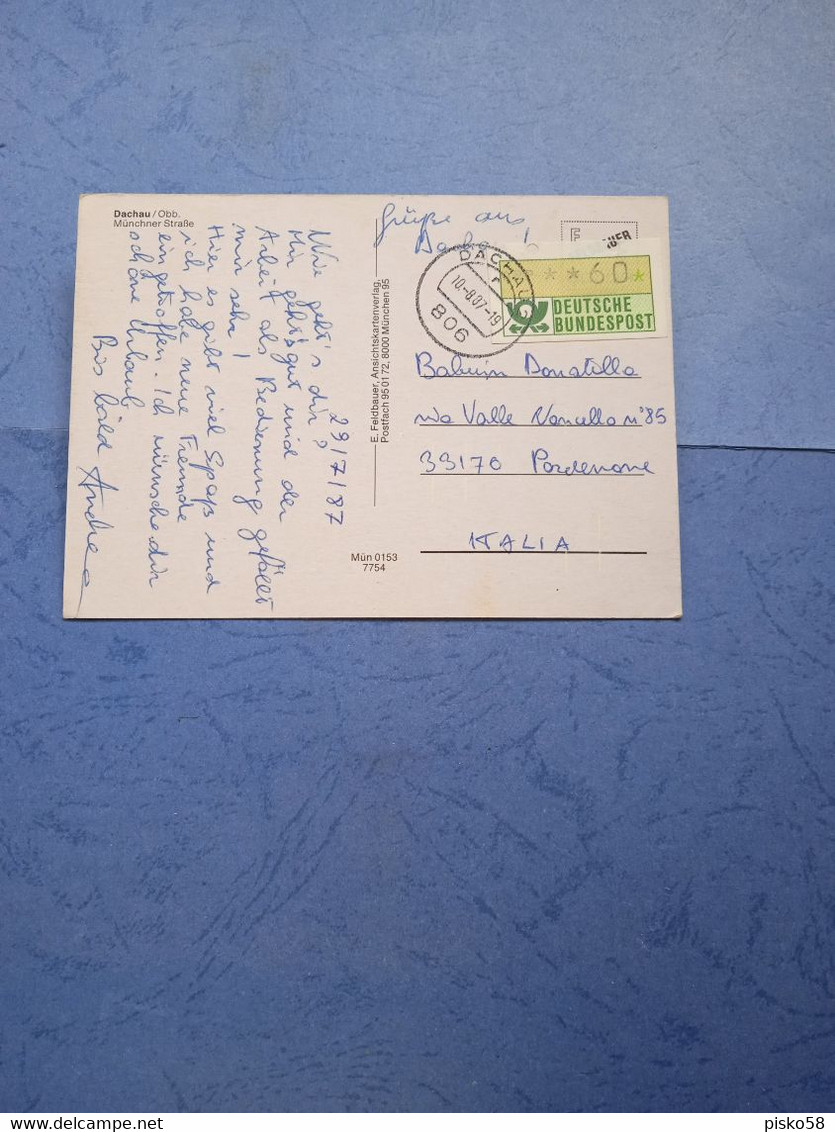 Dachau / Obb.
Münchner Straße
29/7/87
Wie geht's dir?
Mir geht's gut und der
Arbeit als Bedienung gefällt
mir sehr!
Hier es gibt viel Spaß und
ich habe neue Fremde
eingetroffen. Ich wünsche dir
schöne Urlaub
Bis bald Andrea
E. Feldbauer, Ansichtskartenverlag,
Postfach 95 01 72, 8000 München 95
Mün 0153
7754
Grüße aus
Dachau
DACHAU
10-8.87-19
806
**60*
DEUTSCHE
BUNDESPOST
Donatella
via Valle Noncello n°85
33170 Pordenone
ITALIA
delcampe.net
pisko58